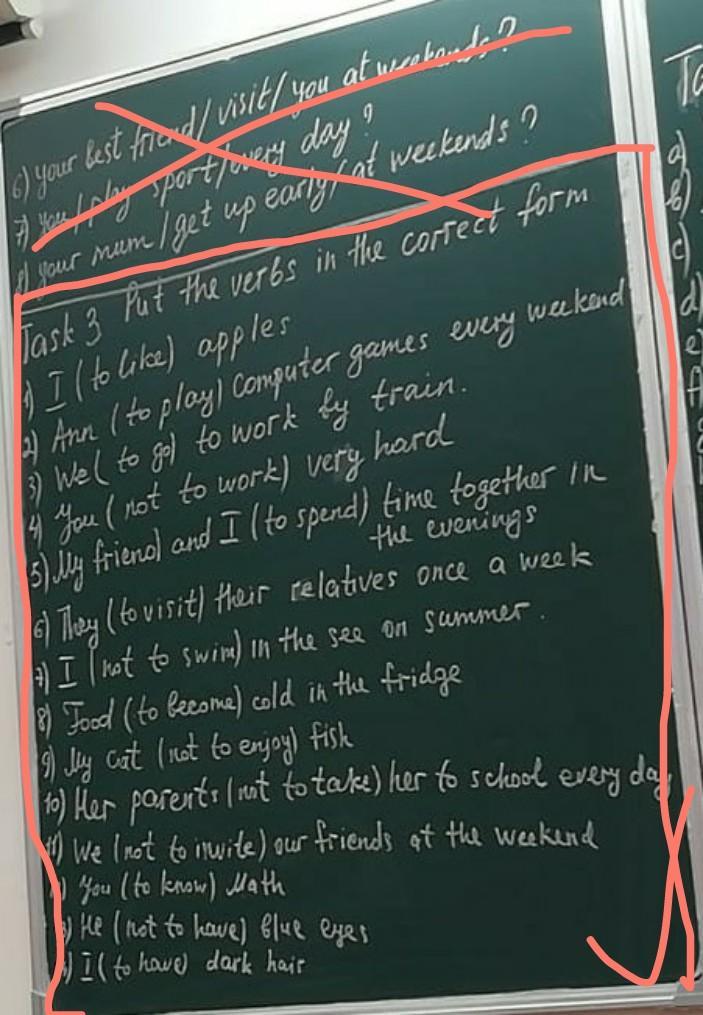 6) your best friend/ visit/ you at weekends?
7) you/ play sport/every day?
8) your mum /get up early/ at weekends?
Task 3 Put the verbs in the correct form
1) I (to like) apples
2) Ann (to play) Computer games every weekend
3) We( to go) to work by train.
4) You ( not to work) very hard
5) My friend and I (to spend) time together in
the evenings
6) They (to visit) their relatives once a week
7) I (not to swim) in the see on summer.
8) Food (to become) cold in the fridge
9) My cat (not to enjoy) fish
10) Her parents (not to take) her to school every day
11) We (not to invite) our friends at the weekend
) You (to know) Math
) He (not to have) blue eyes
) I (to have) dark hair
Ta
a)
b)
c)
d)
e)